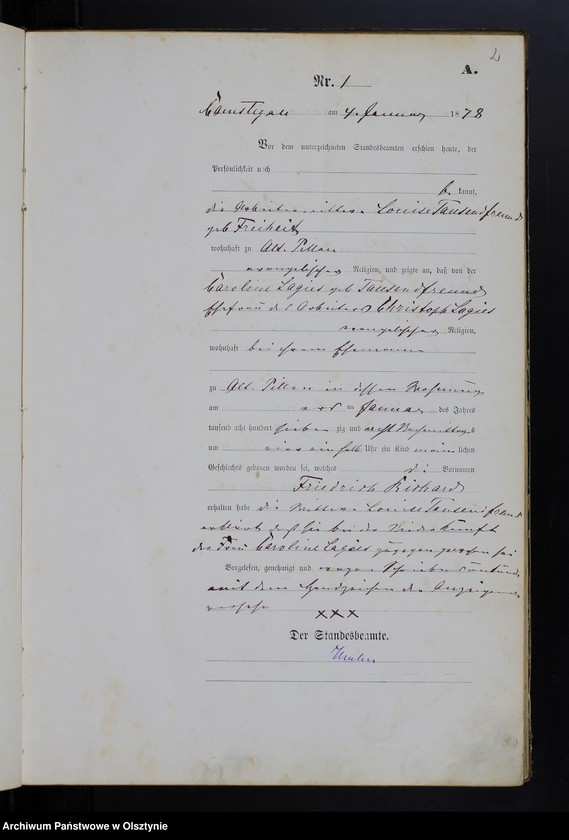 2
A.
Nr. 1
Camstigall am 4. Januar 1878
Vor dem unterzeichneten Standesbeamten erschien heute, der
Persönlichkeit nach
be kannt,
die Arbeiterwittwe Louise Tausendfreund
geb Freiheit
wohnhaft zu Alt. Pillau
evangelischer Religion, und zeigte an, daß von der
Caroline Lagies geb. Tausendfreund
Ehefrau des Arbeiters Christoph Lagies
evangelischer Religion,
wohnhaft bei ihrem Ehemanne
zu Alt. Pillau in dessen Wohnung
am im Januar des Jahres
tausend acht hundert sieben zig und acht Nachmittags
um vier ein halb Uhr ein Kind männ lichen
Geschlechts geboren worden sei, welches die Vornamen
Friedrich Richard
erhalten habe die Wittwe Louise Tausendfreund
erklärt daß sie bei der Niederkunft
der Frau Caroline Lagies zugegen gewesen sei
Vorgelesen, genehmigt und wegen Schreibens
mit dem Handzeichen der Anzeigenden
versehen
XXX
Der Standesbeamte.
Archiwum Państwowe w Olsztynie